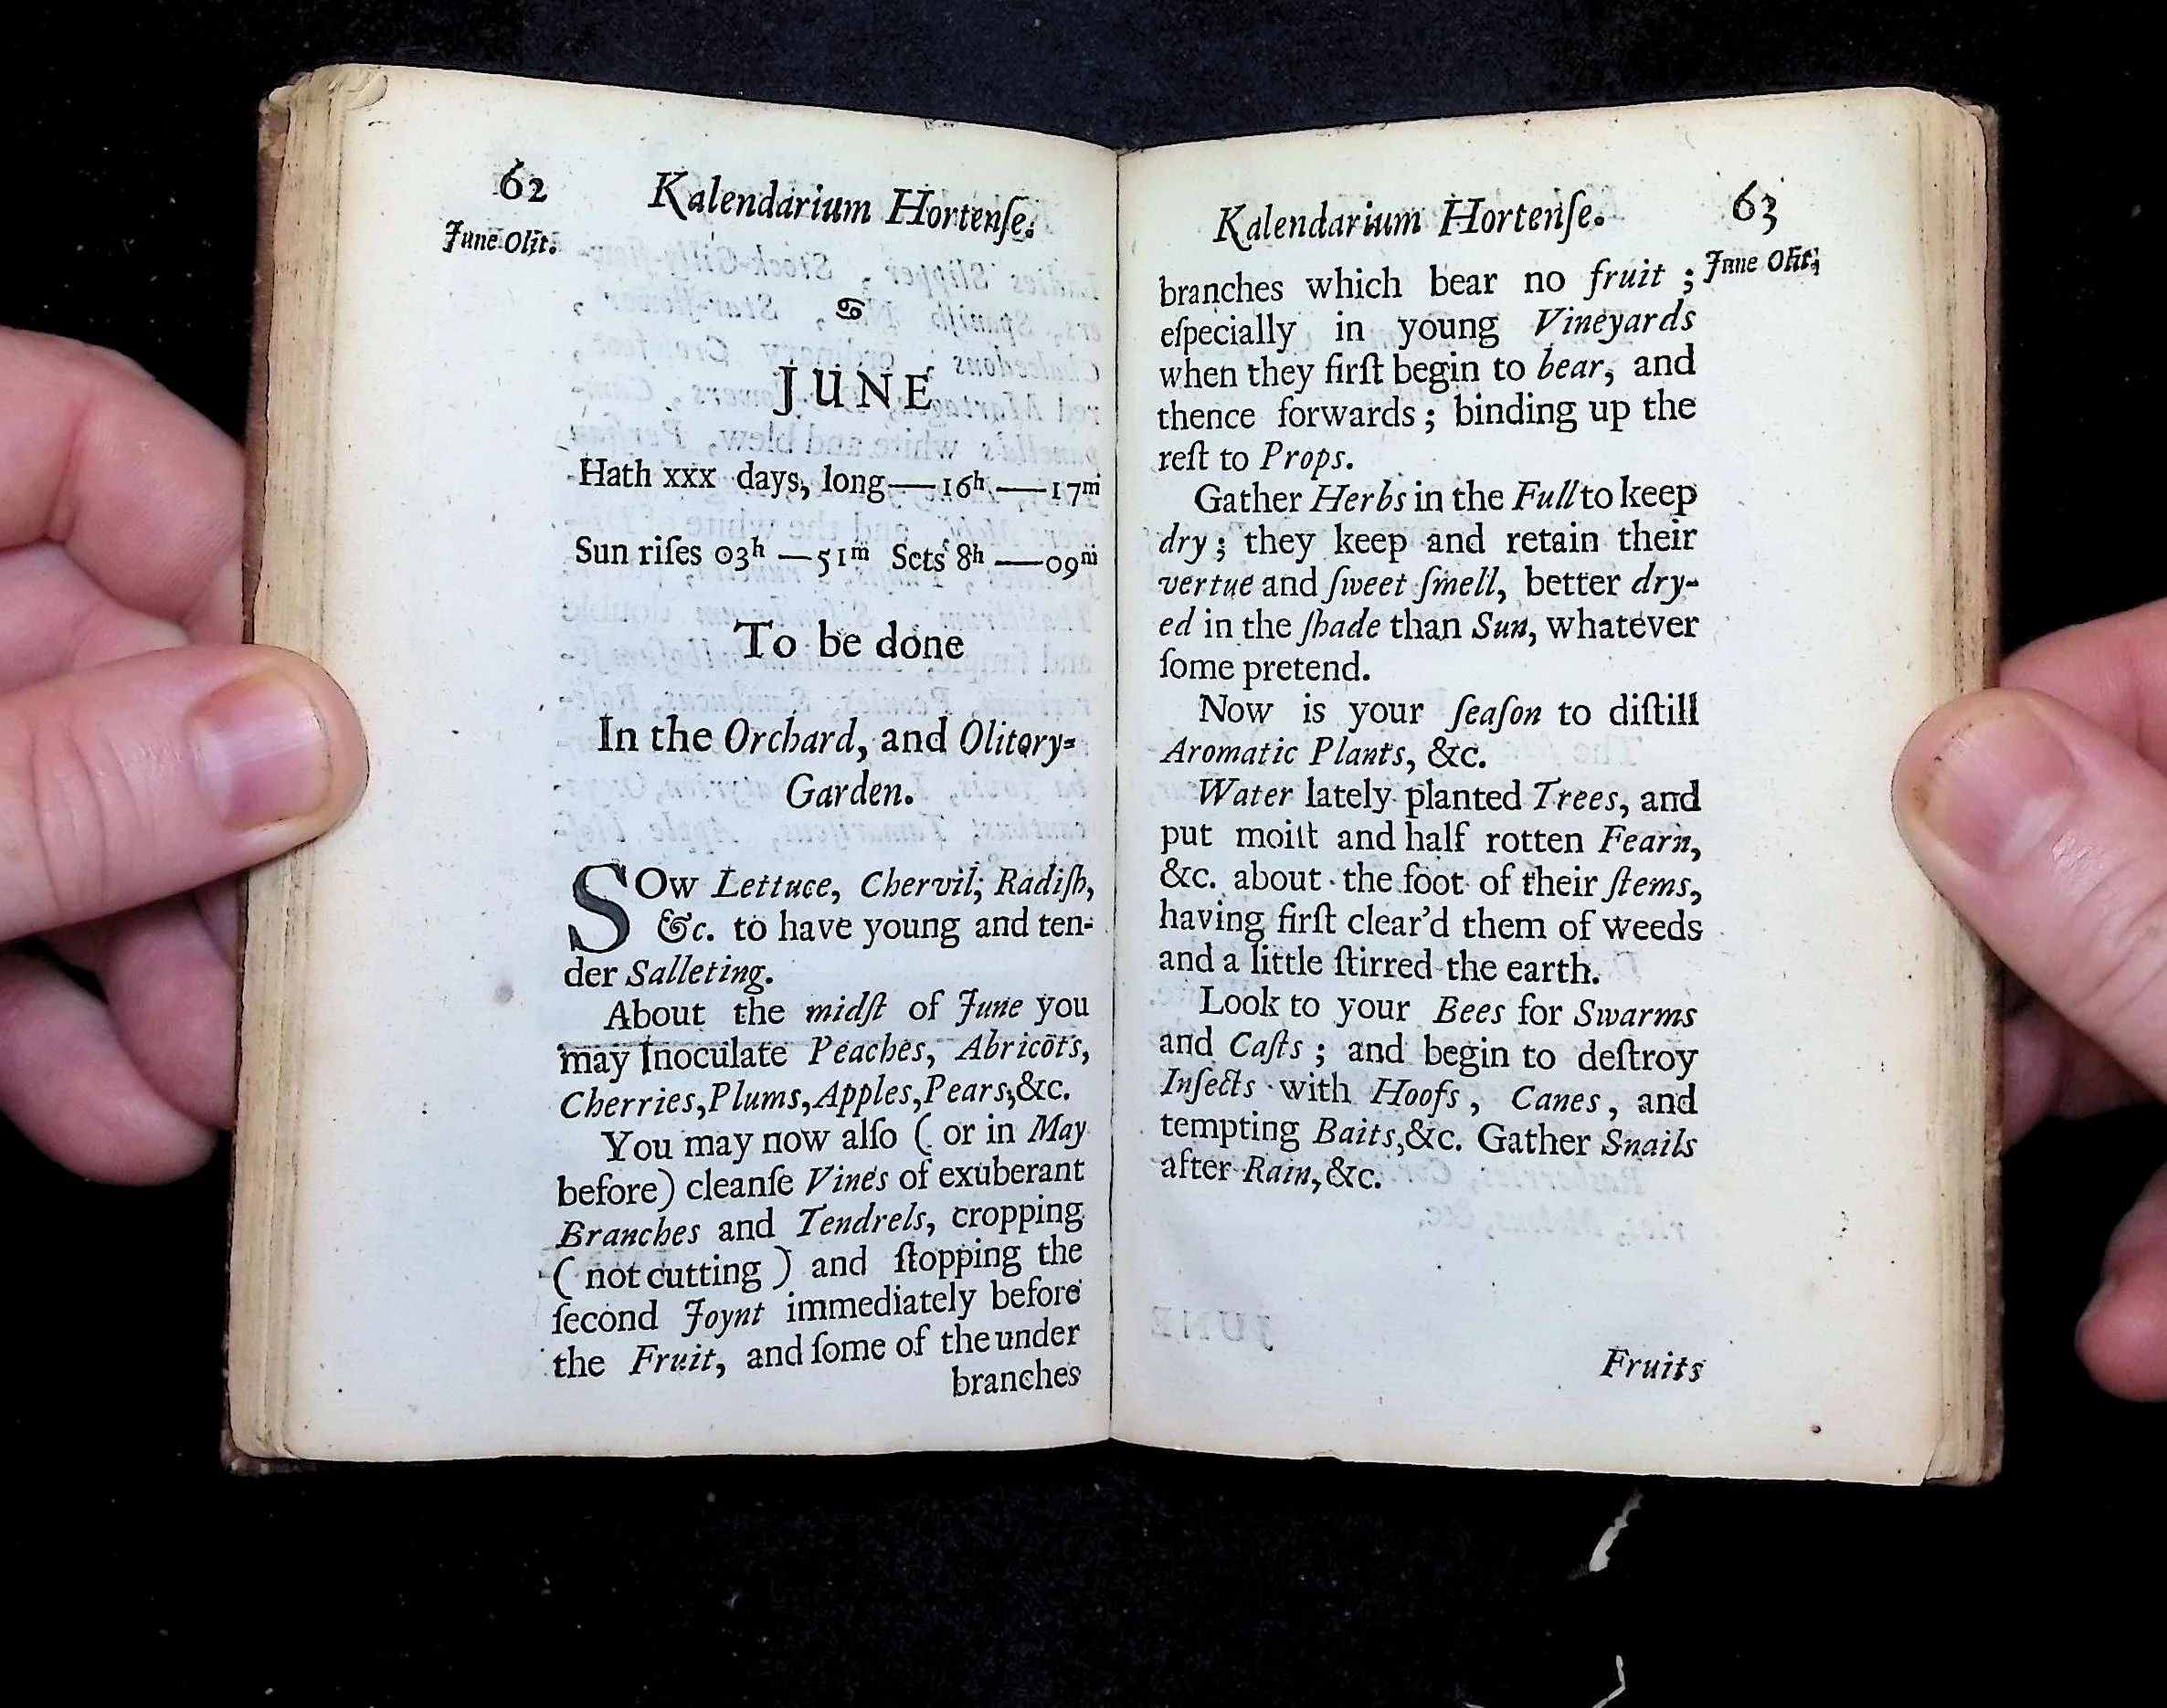 62 Kalendarium Hortenſe.
June Olit.
♋
JUNE
Hath xxx days, long—16h—17m
Sun riſes 03h—51m Sets 8h—09m
To be done
In the Orchard, and Olitory-
Garden.
SOw Lettuce, Chervil, Radiſh,
&c. to have young and ten-
der Salleting.
About the midſt of June you
may Inoculate Peaches, Abricots,
Cherries, Plums, Apples, Pears, &c.
You may now alſo ( or in May
before) cleanſe Vines of exuberant
Branches and Tendrels, cropping
( not cutting ) and ſtopping the
ſecond Joynt immediately before
the Fruit, and ſome of the under
branches
Kalendarium Hortenſe. 63
June Olit.
branches which bear no fruit ;
eſpecially in young Vineyards
when they firſt begin to bear, and
thence forwards ; binding up the
reſt to Props.
Gather Herbs in the Full to keep
dry ; they keep and retain their
vertue and ſweet ſmell, better dry-
ed in the ſhade than Sun, whatever
ſome pretend.
Now is your ſeaſon to diſtill
Aromatic Plants, &c.
Water lately planted Trees, and
put moiſt and half rotten Fearn,
&c. about the foot of their ſtems,
having firſt clear'd them of weeds
and a little ſtirred the earth.
Look to your Bees for Swarms
and Caſts ; and begin to deſtroy
Inſects with Hoofs, Canes, and
tempting Baits, &c. Gather Snails
after Rain, &c.
Fruits